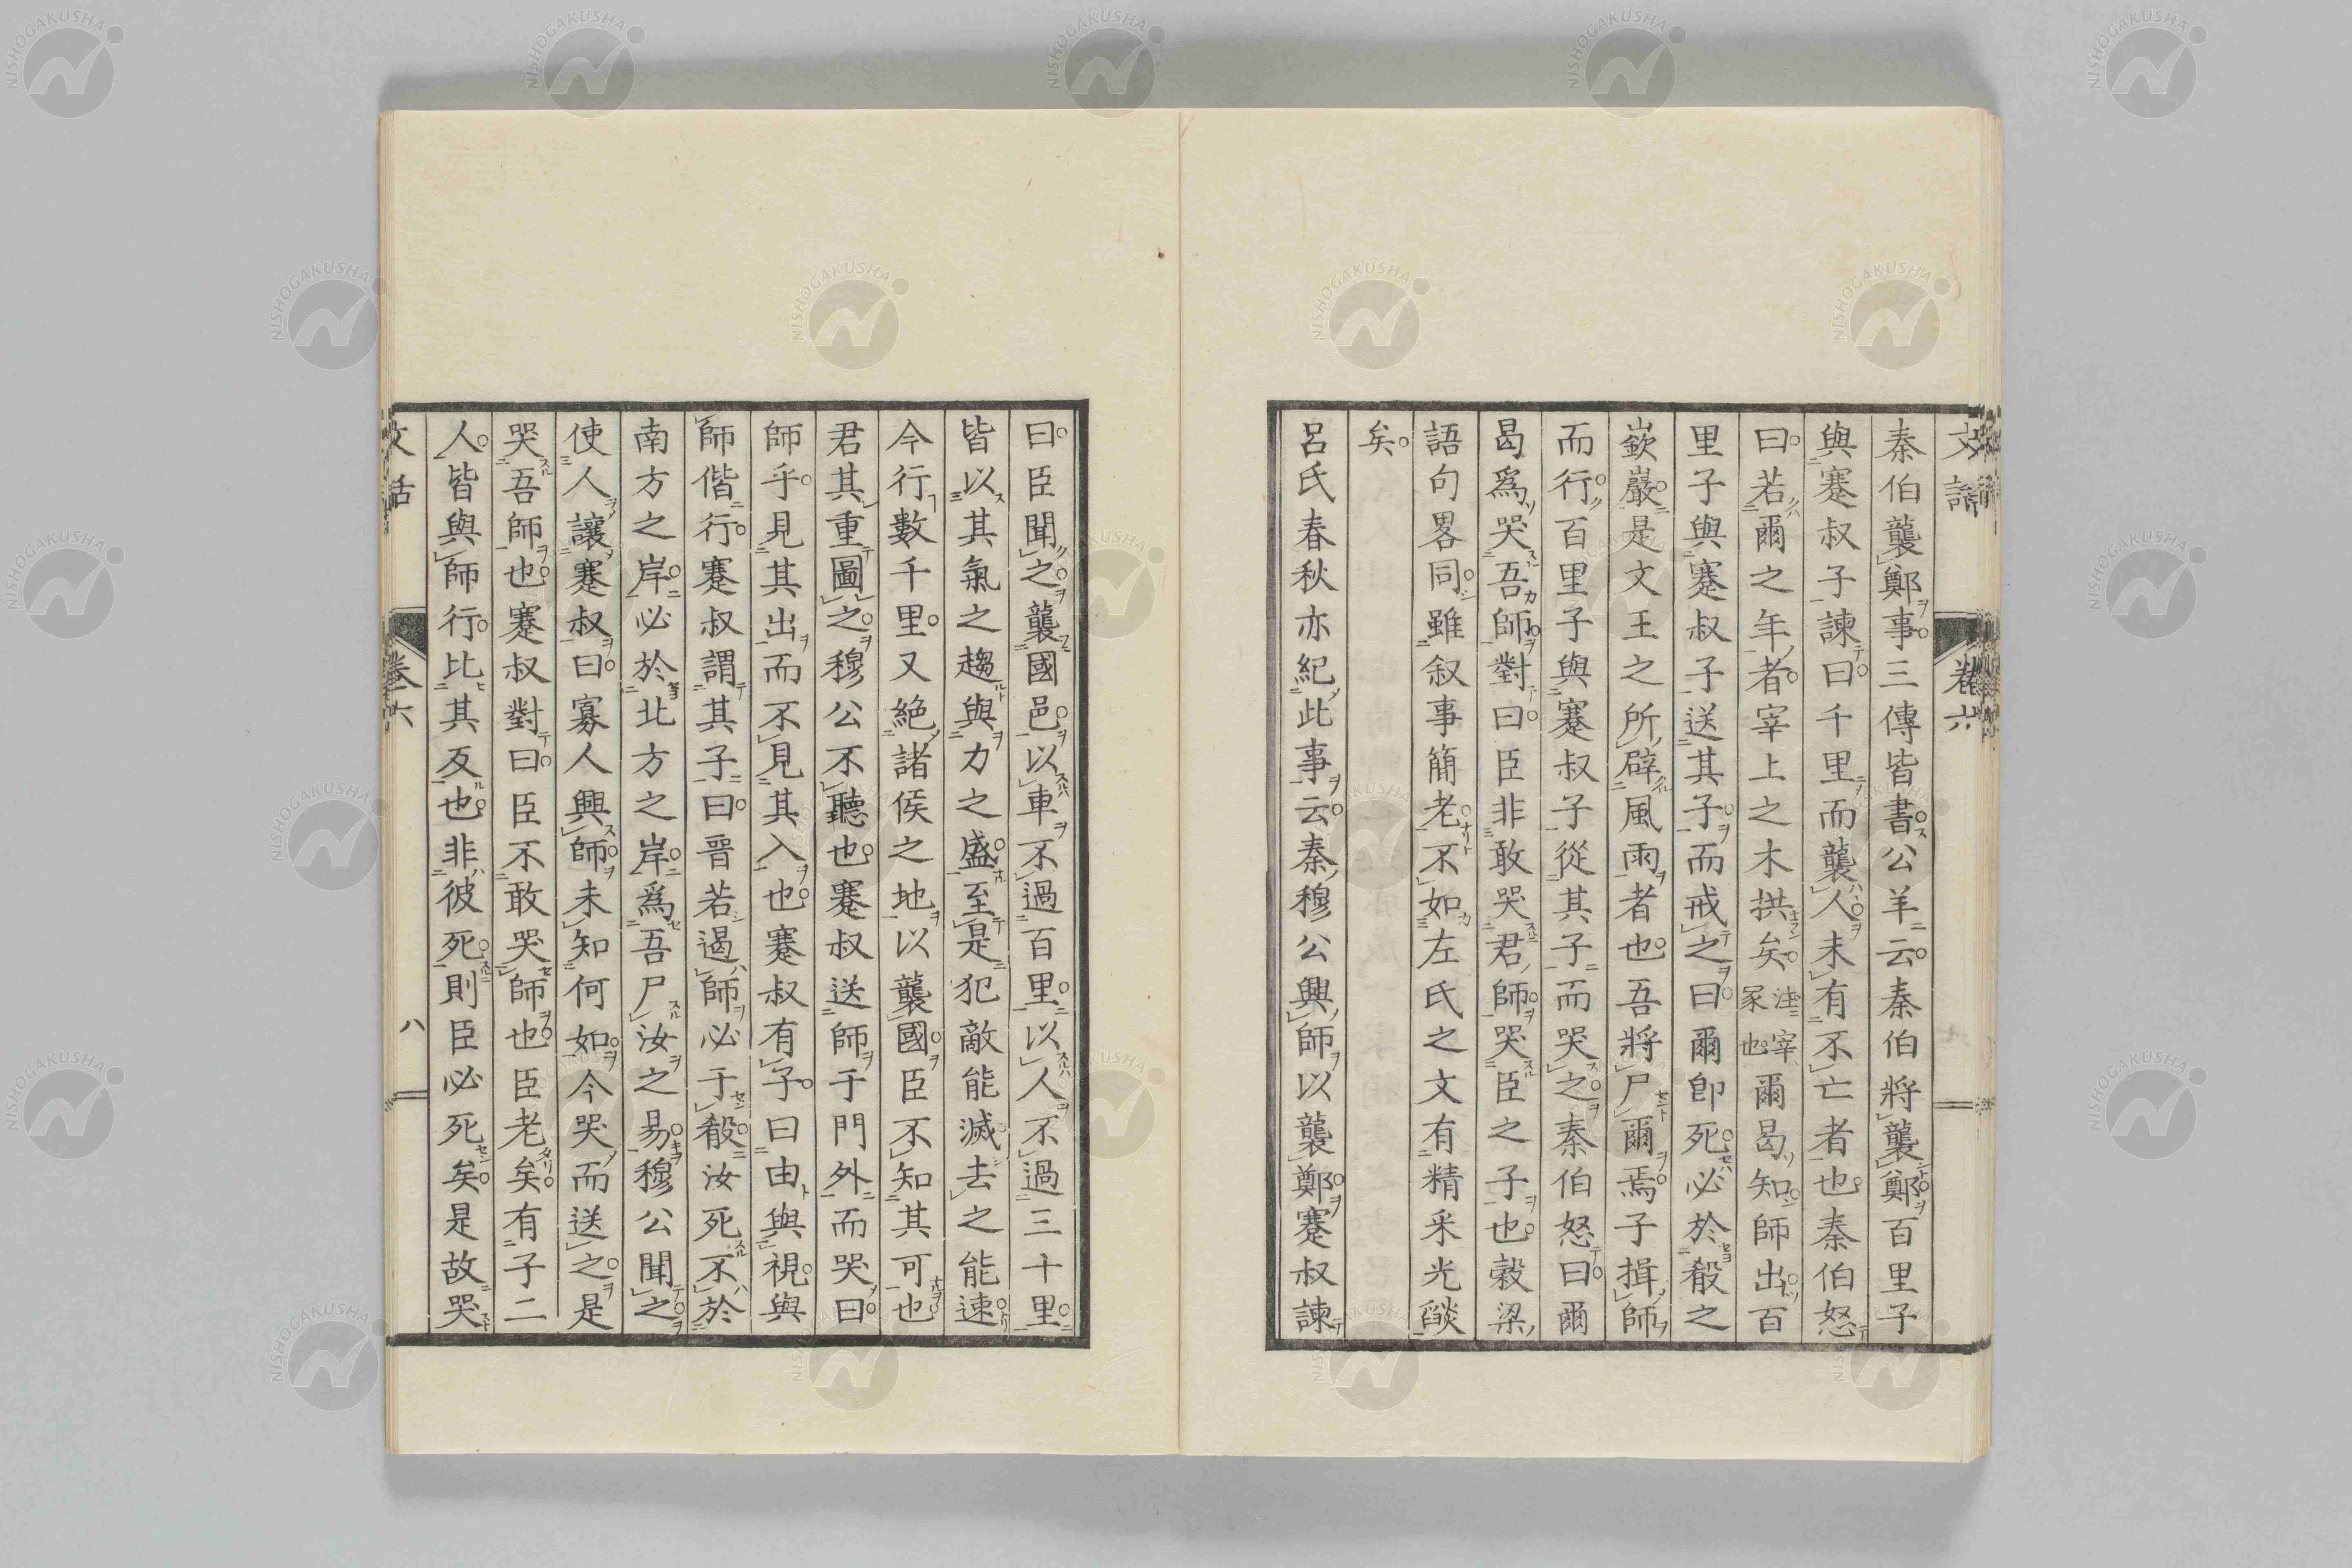 文話 卷六
秦伯襲鄭事三傳皆書公羊云秦伯將襲鄭百里子
與蹇叔子諫曰千里而襲人未有不亡者也秦伯怒
曰若爾之年者宰上之木拱矣注宰冢也爾曷知師出百
里子與蹇叔子送其子而戒之曰爾即死必於殽之
嶔巖是文王之所辟風雨者也吾將尸爾焉子揖師
而行百里子與蹇叔子從其子而哭之秦伯怒曰爾
曷爲哭吾師對曰臣非敢哭君師哭臣之子也穀梁
語句畧同雖叙事簡老不如左氏之文有精采光燄
矣
呂氏春秋亦紀此事云秦穆公興師以襲鄭蹇叔諫
曰臣聞之襲國邑以車不過百里以人不過三十里
皆以其氣之趫與力之盛至是犯敵能滅去之能速
今行數千里又絕諸侯之地以襲國臣不知其可也
君其重圖之穆公不聽也蹇叔送師于門外而哭曰
師乎見其出而不見其入也蹇叔有子曰申與視與
師偕行蹇叔謂其子曰晉若遏師必于殽汝死不於
南方之岸必於北方之岸爲吾尸汝之易穆公聞之
使人讓蹇叔曰寡人興師未知何如今哭而送之是
哭吾師也蹇叔對曰臣不敢哭師也臣老矣有子二
人皆與師行比其反也非彼死則臣必死矣是故哭
文話 卷六 八
NISHOGAKUSHA